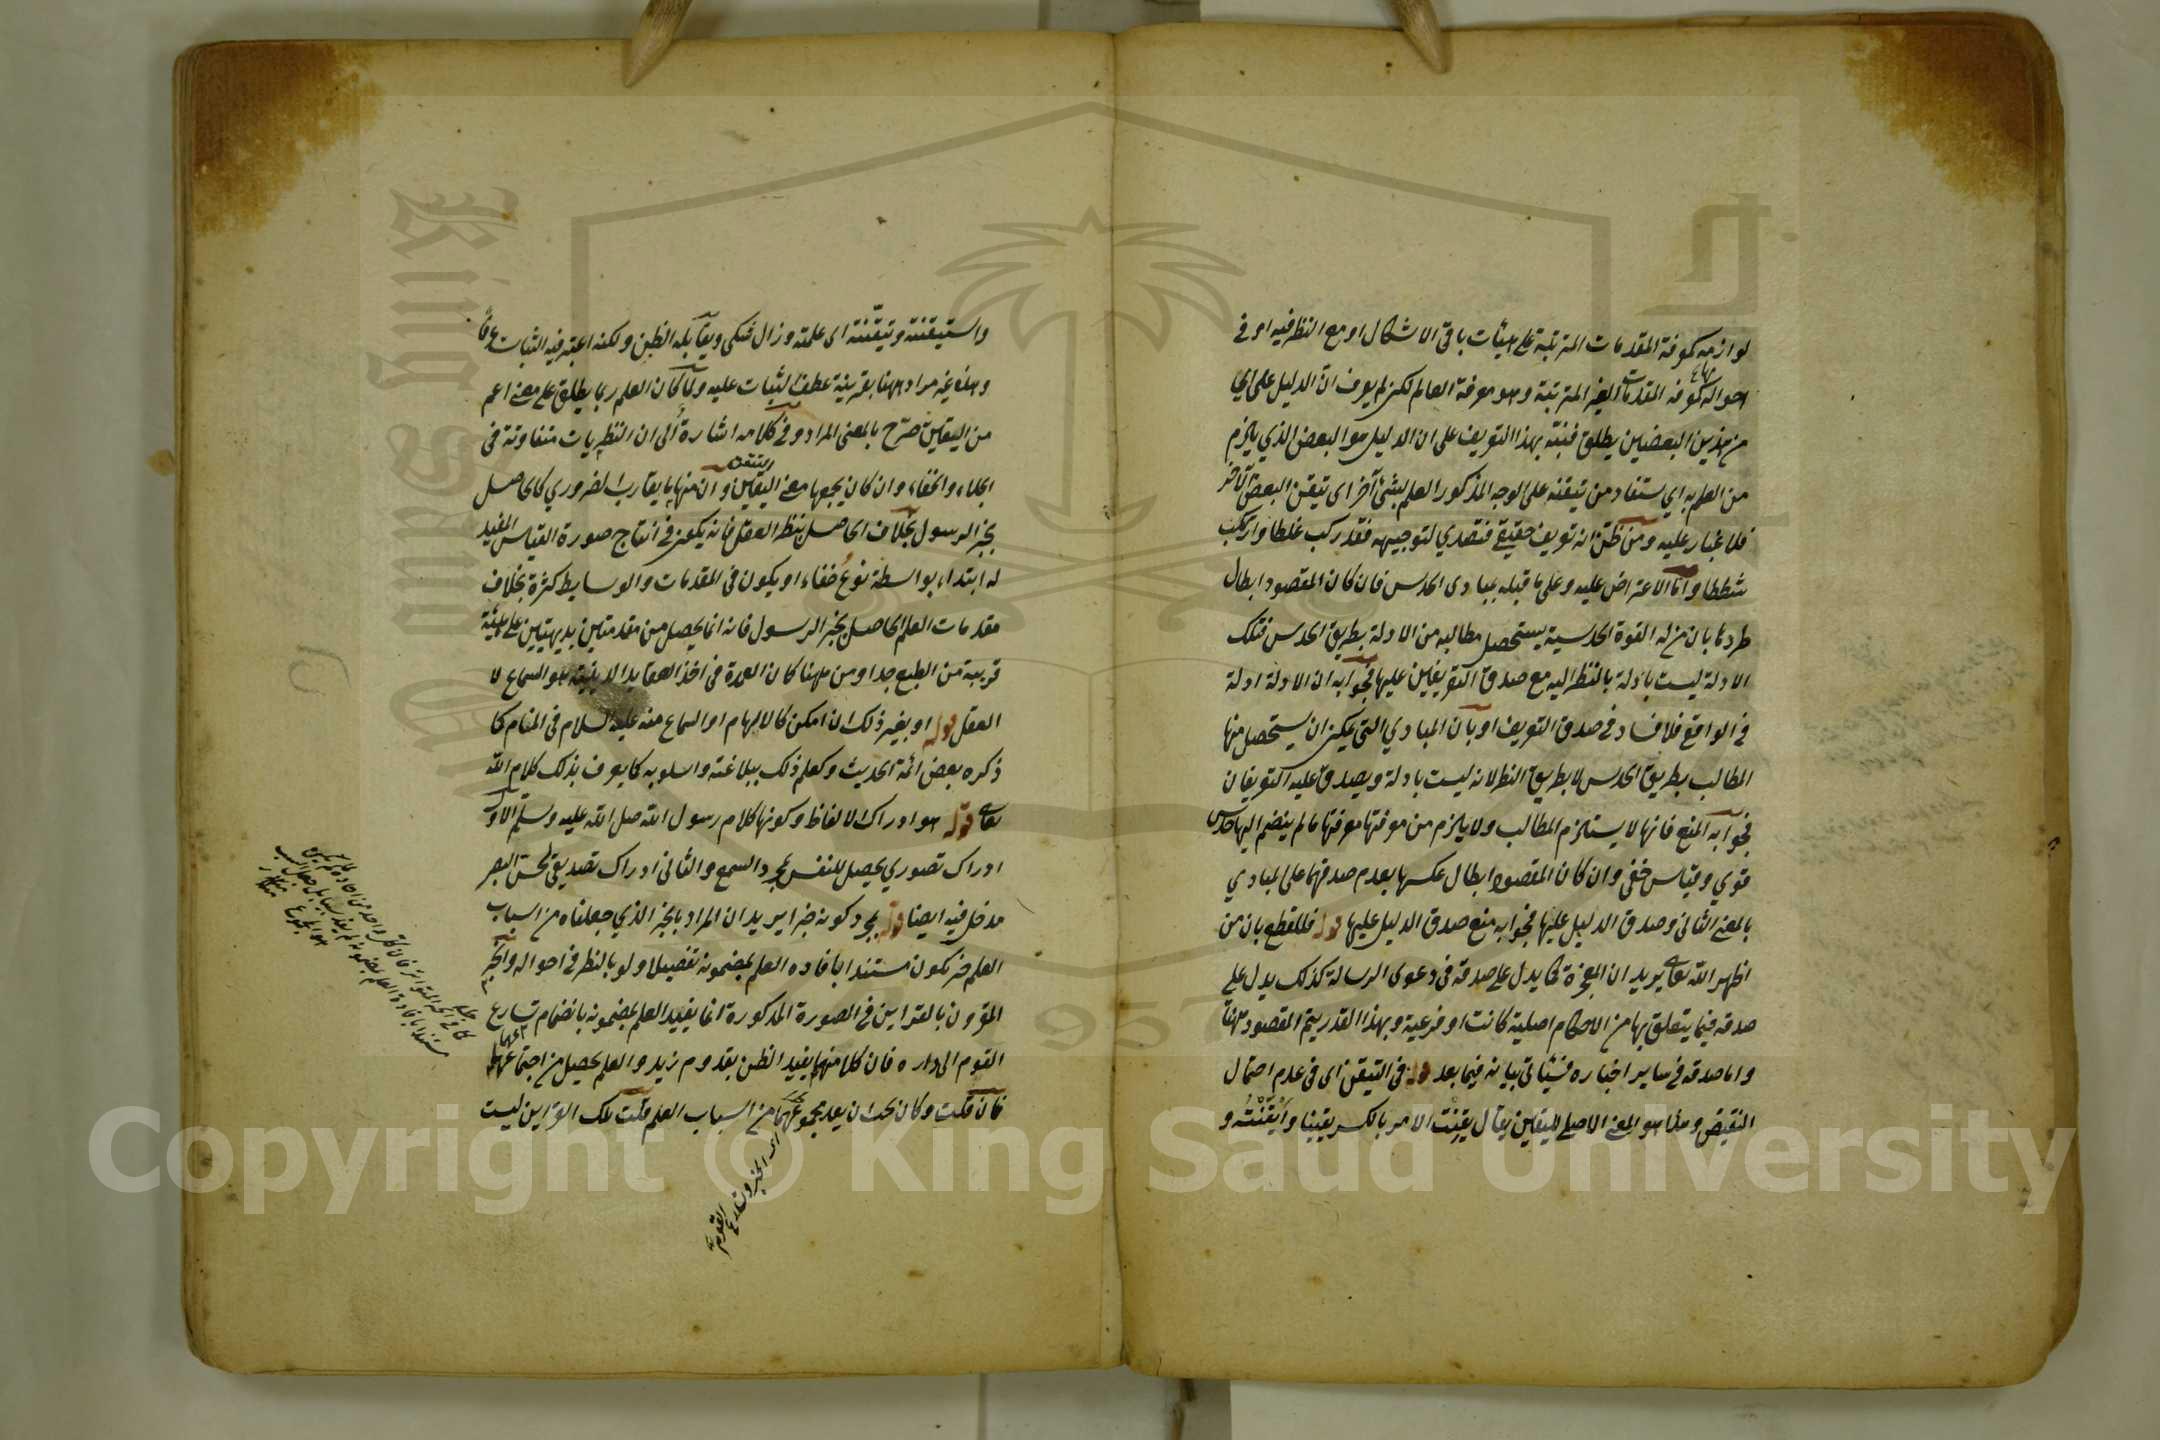 لوازمه كمعرفة المقدمات المترتبة على هيئات باقي الاشكال او مع النظر فيه او في
احواله كمعرفة المقدمات الغير المترتبة وهو معرفة العالم لكن لم يعرف ان الدليل على ايها
من هذين البعضين يطلق فنبه بهذا التعريف على ان الدليل هو البعض الذي يلزم
من العلم به اي يستفاد من تيقنه على الوجه المذكور العلم بشئ آخر اى تيقن البعض الآخر
فلا غبار عليه ومن ظن انه تعريف حقيقي فتصدي لتوجيهه فقد ركب غلطا وارتكب
شططا واما الاعتراض عليه وعلى ما قبله بمبادى الحدس فان كان المقصود ابطال
طردهما بان من له القوة الحدسية يستحصل مطالبه من الادلة بطريق الحدس فتلك
الادلة ليست بادلة بالنظر اليه مع صدق التعريفين عليها فجوابه ان الادلة ادلة
في الواقع فلا فساد في صدق التعريف او بان المبادي التي يمكن ان يستحصل منها
المطالب بطريق الحدس لا بطريق النظر لانه ليست بادلة ويصدق عليه التعريفان
فجوابه المنع فانها لا يستلزم المطالب ولا يلزم من معرفتها معرفتها ما لم ينضم اليها حدس
قوي وقياس خفي وان كان المقصود ابطال عكسهما بعدم صدقهما على المبادي
بالمعنى الثاني وصدق الدليل عليها فجوابه منع صدق الدليل عليها قوله فللقطع بان من
اظهر الله تعالى يريد ان المعجزة كما يدل على صدقه في دعوى الرسالة كذلك يدل على
صدقه فيما يتعلق بها من الاحكام اصلية كانت او فرعية وبهذا القدر يتم المقصود ههنا
واما صدقه في ساير اخباره فسياتى بيانه فيما بعد قوله في التيقن اى في عدم احتمال
النقيض وهذا هو المعنى الاصلي لليقين يقال يقنت الامر بالكسر يقينا وايقنته و
واستيقنته وتيقنته اى علمته وزال شكى ويقابله الظن ولكنه اعتبر فيه الثبات عرفا
وهذه غير مراد ههنا بقرينة عطف الثبات عليه ولما كان العلم ربما يطلق على معنى اعم
من اليقين صرح بالمعنى المراد وفي كلامه اشارة الى ان النظريات متفاوتة في
الجلاء والخفاء وان كان يجمعها معنى اليقين وان منها ما يقارب الضروري كالحاصل
بخبر الرسول بخلاف الحاصل بنظر العقل فانه يكون في انتاج صورة القياس المفيد
له ابتداء بواسطة نوع خفاء او يكون في المقدمات والوسايط كثرة بخلاف
مقدمات العلم الحاصل بخبر الرسول فانه انما يحصل من مقدمتين بديهيتين على هيئة
قريبة من الطبع جدا ومن ههنا كان العمدة في اخذ العقايد الدينية هو السماع لا
العقل قوله او بغير ذلك ان امكن كالالهام او السماع منه عليه السلام في المنام كما
ذكره بعض ائمة الحديث وكعلم ذلك ببلاغته واسلوبه كما يعرف بذلك كلام الله
تعالى قوله هو ادراك الالفاظ وكونها كلام رسول الله صلى الله عليه وسلم الاول
ادراك تصوري يحصل للنفس بمجرد السمع والثاني ادراك تصديقي لحس البصر
مدخل فيه ايضا قوله بمجرد كونه خبرا يريد ان المراد بالخبر الذي جعلناه من اسباب
العلم خبر يكون مستندا بافادة العلم بمضمونه تفصيلا ولو بالنظر في احواله والخبر
المقرون بالقراين في الصورة المذكورة انما يفيد العلم بمضمونه بانضمام تسارع
القوم الى داره فان كلا منهما يفيد الظن بقدوم زيد والعلم يحصل من اجتماعهما
فان قلت وكان يمكن ان يعد مجموعهما من اسباب العلم قلت تلك القراين ليست
اى الخبر وتسارع
القوم